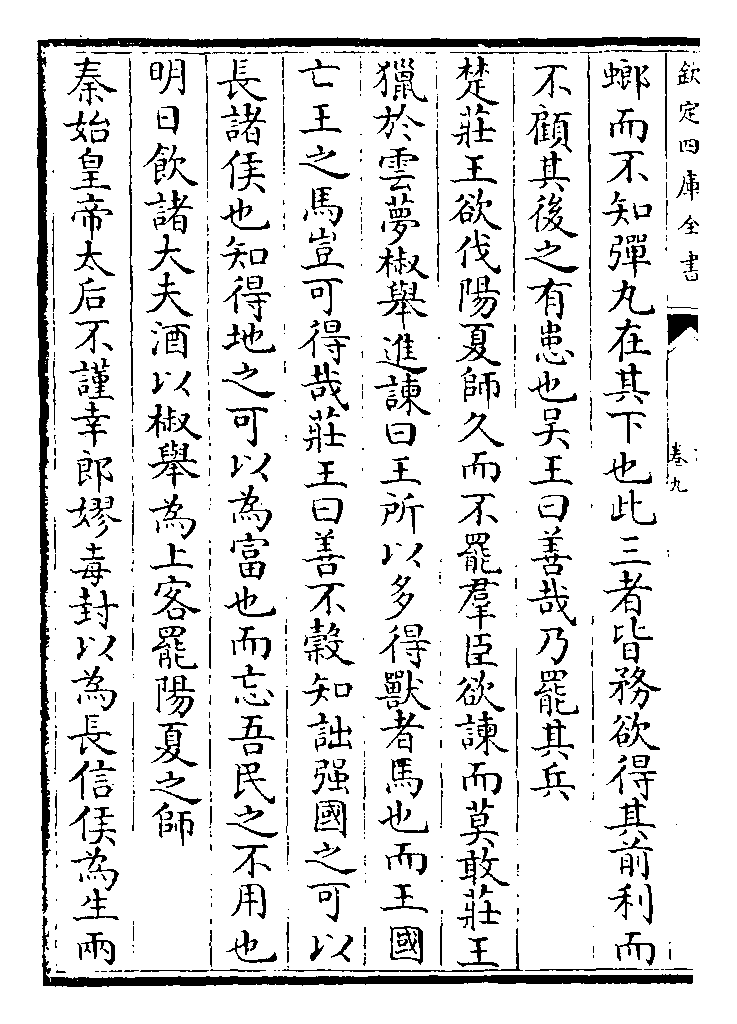 欽定四庫全書
卷九
螂而不知彈丸在其下也此三者皆務欲得其前利而
不顧其後之有患也吴王曰善哉乃罷其兵
楚莊王欲伐陽夏師久而不罷羣臣欲諫而莫敢莊王
獵於雲夢椒舉進諫曰王所以多得獸者馬也而王國
亡王之馬豈可得哉莊王曰善不榖知詘强國之可以
長諸侯也知得地之可以為富也而忘吾民之不用也
明日飲諸大夫酒以椒舉為上客罷陽夏之師
秦始皇帝太后不謹幸郎嫪毐封以為長信侯為生兩